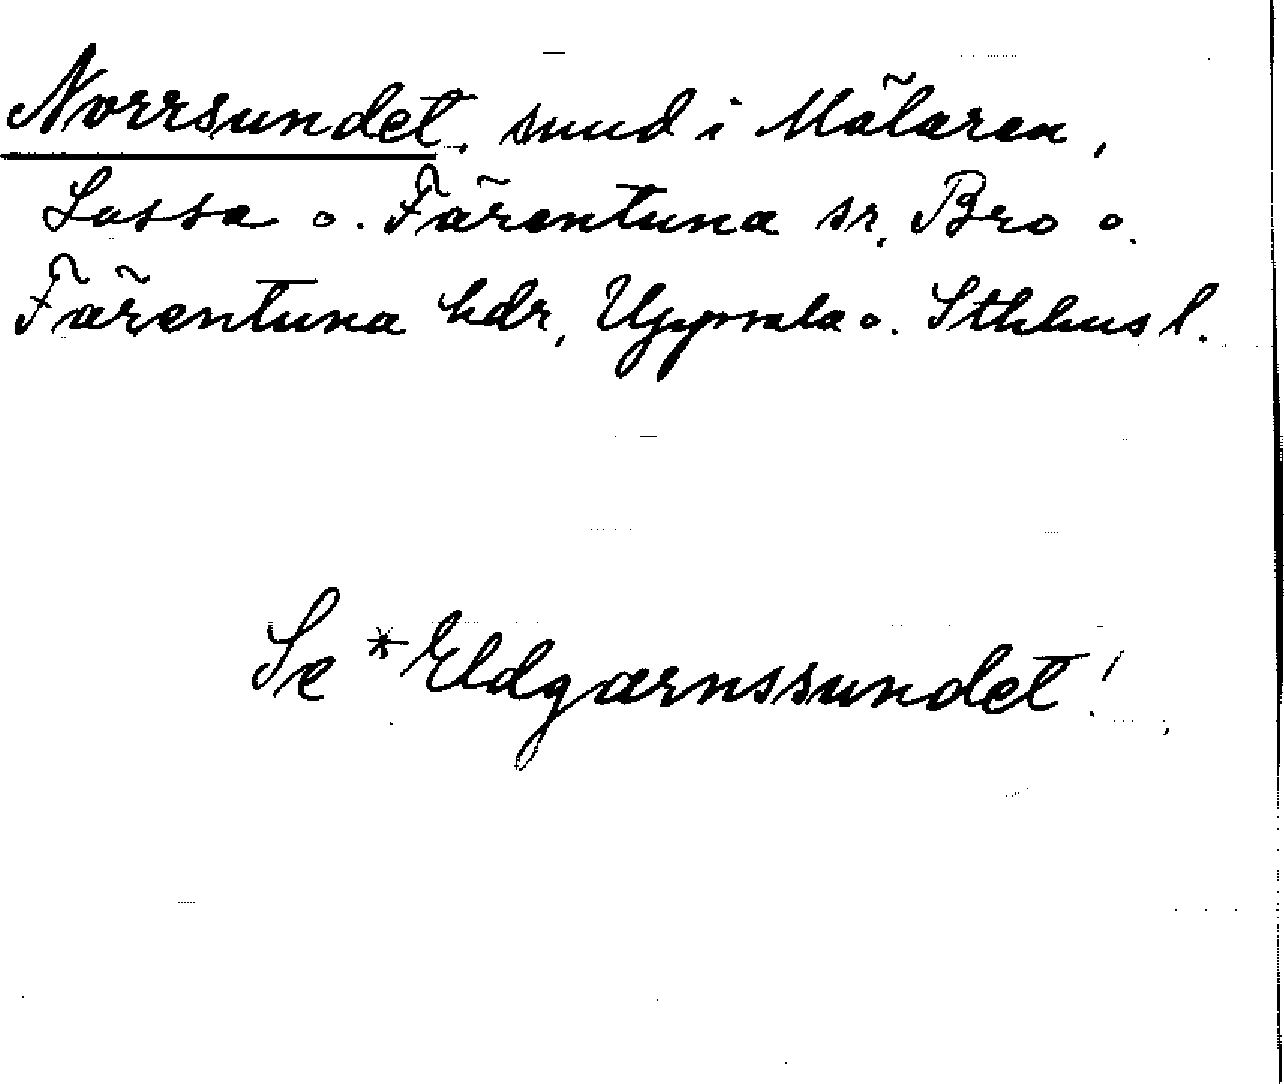 Norrsundet, sund i Mälaren,
Lossa o. Färentuna sr, Bro o.
Färentuna hdr, Uppsala o. Sthlms l.
Se *Eldgarnssundet!